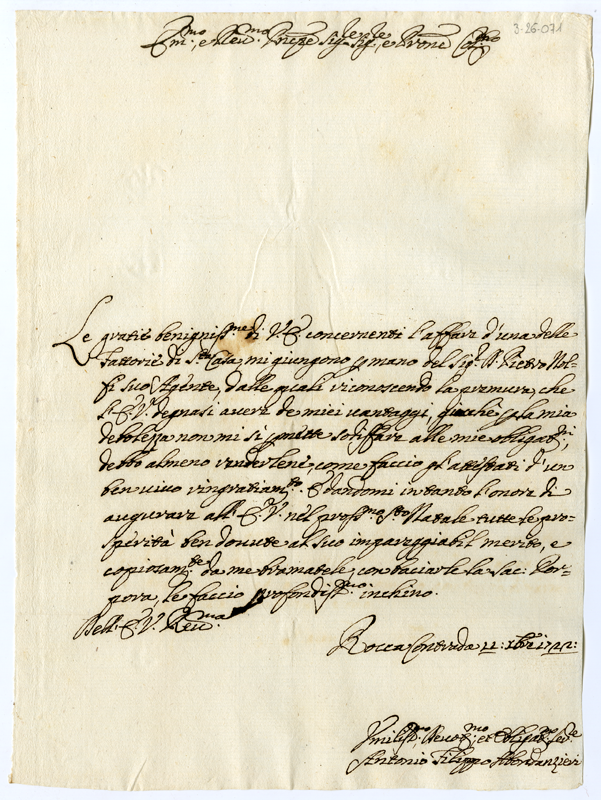 3-26-071
Em.mo, e Rev.mo Prñpe Sig.re Sig.re, e Prone Col.mo
Le gratie benigniss.me di V.E. concernenti l'affare d'una delle
fattorie di S.ta Casa, mi giungono p mano del Sig.r D. Pietro Nol=
fi suo Agente, dalle quali riconoscendo la premura, che
l'E.V. degnasi avere de miei vantaggi, giacchè p la mia
debolezza non mi si pmette sodisfare alle mie obligat.ni,
debbo almeno renderleni, come faccio gl'attestati d'un
ben vivo ringratiam.to. E dandomi intanto l'onore di
augurare all'E.V. nel pross.mo S.to Natale tutte le pro=
sperità ben dovute al suo impareggiabil merito, e
copiosam.te da me bramatele, con baciarle la Sac. Por=
pora, le faccio profondiss.mo inchino.
Dell'E.V. Rev.ma
Rocca Contrada 11: Xbre 1722:
Umiliss.mo Devot.mo et Obligat. Ser.re
Antonio Filippo Abordanzieri